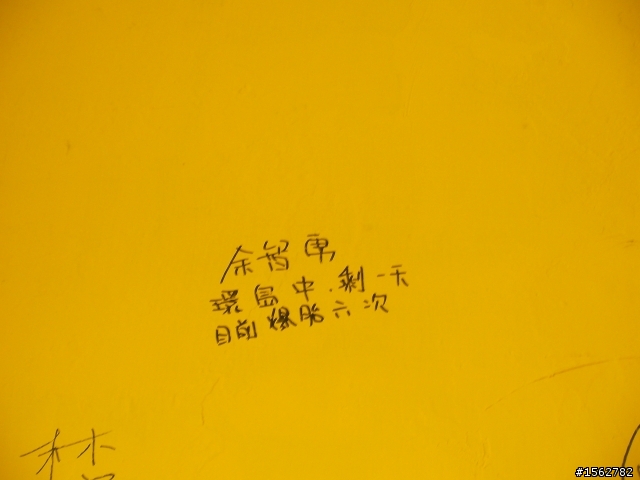 余智勇
環島中.剩一天
目前爆胎六次
林
#1562782